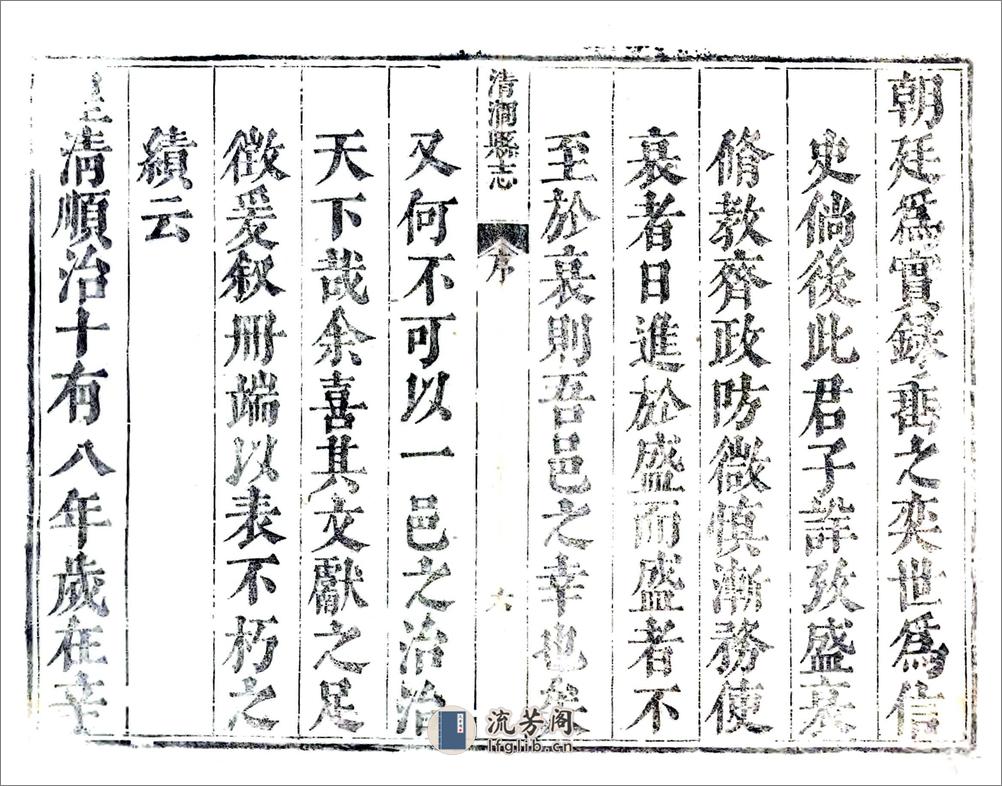 朝廷爲實録垂之奕世爲信
史倘後此君子詳攷盛衰
脩教齊政防微慎漸務使
衰者日進於盛而盛者不
至於衰則吾邑之幸也矣
清澗縣志
序
六
又何不可以一邑之治治
天下哉余喜其文獻之足
徵爰叙册端以表不朽之
績云
皇清順治十有八年歲在辛
流芳阁
lfglib.cn